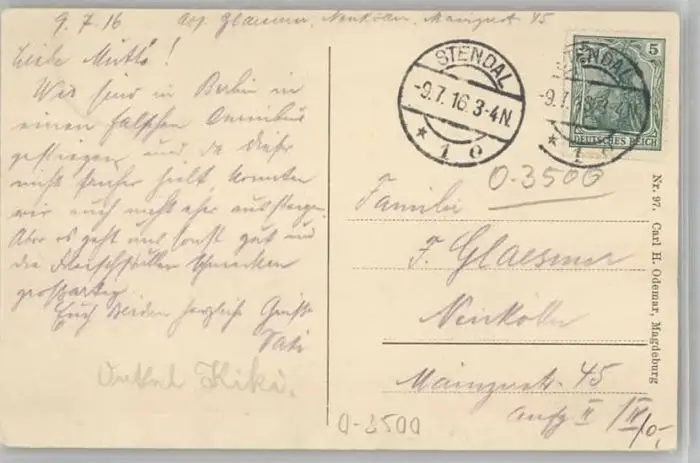 9.7.16 Abs. Glaesmer, Neukölln, Mainzerstr. 45
Liebe Mutti!
Wir sind in Berlin in
einen falschen Omnibus
gestiegen und da dieser
nicht früher hielt, konnten
wir auch nicht eher aussteigen.
Aber es geht uns sonst gut und
die schmecken
großartig.
Euch beiden herzliche Grüße
Vati
Onkel Kiki.
STENDAL
-9.7.16.3-4N.
* 1 c
STENDAL
-9.7.16.3-4N.
* 1 c
5
DEUTSCHES REICH
O-3500
Familie
F. Glaesmer
Neukölln
Mainzerstr. 45
Aufg II
10,-
O-3500
Nr. 97. Carl H. Odemar, Magdeburg